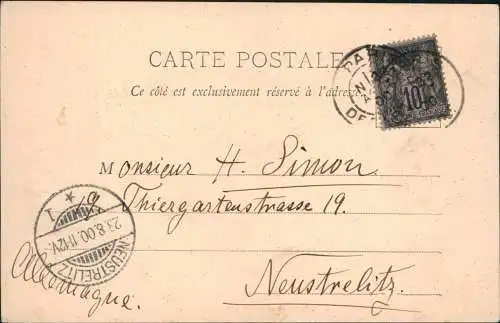 CARTE POSTALE
Ce côté est exclusivement réservé à l'adresse
PAR
DE
10
Monsieur H. Simon
Thiergartenstrasse 19.
19
* 1
23.8.00.11-12V.
NEUSTRELITZ
Neustrelitz.
Allemagne.